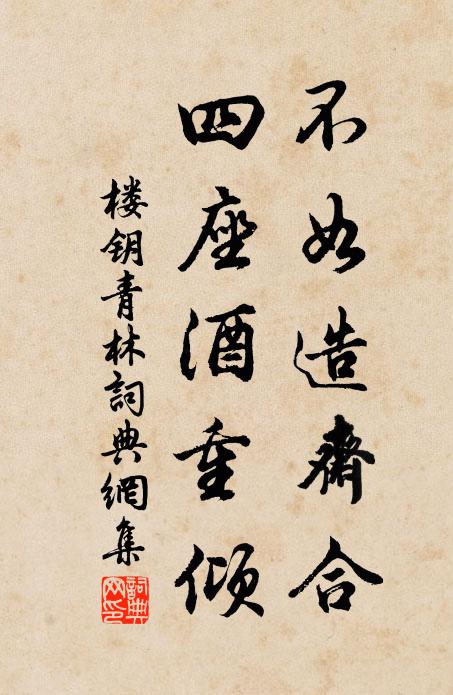 不如造齋合
四座酒重傾
楼钥青林詞典網集
詞典网印